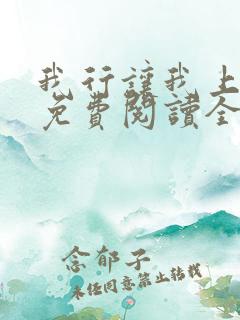 我行讓我上
免費閱讀全
念郁子
未經同意禁止轉載